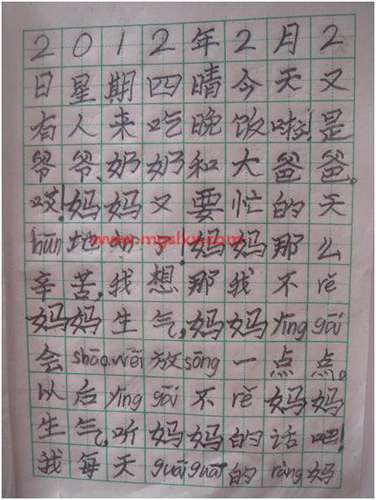 2012年2月2
日星期四晴今天又
有人来吃晚饭啦!是
爷爷、奶奶和大爸爸。
哎!妈妈又要忙的天
hūn地 了!妈妈那么
辛苦,我想那我不rě
妈妈生气,妈妈yīng gāi
会shāo wēi放sōng一点点。
以后yīng gāi不rě妈妈
生气,听妈妈的话吧!
我每天guāi guāi的ràng妈
www.mgslxx.com